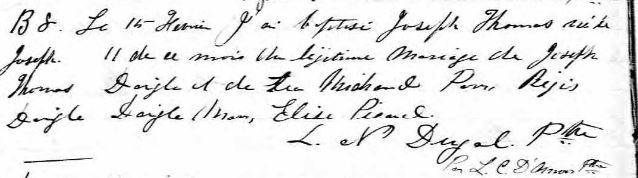 B 8. Le 15 Fevrier J'ai baptisé Joseph Thomas né le
Joseph. 11 de ce mois du légitime Mariage de Joseph
Thomas Daigle et de Lea Michaud Parr. Régis
Daigle Daigle Marr. Elise Picard.
L. N. Dugal. Ptre
Par L. C. D'Amours Ptre